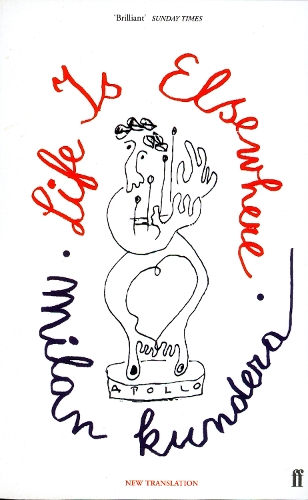 'Brilliant' SUNDAY TIMES
Life Is Elsewhere
Milan Kundera
APOLLO
NEW TRANSLATION
ff